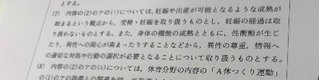 とする。
(7) 内容の(2)のアの(イ)については，妊娠や出産が可能となるような成熟が
始まるという観点から，受精・妊娠を取り扱うものとし，妊娠の経過は取
り扱わないものとする。また，身体の機能の成熟とともに，性衝動が生じ
たり，異性への関心が高まったりすることなどから，異性の尊重，情報へ
の適切な対処や行動の選択が必要となることについて取り扱うものとする。
(8) 内容の(2)のアの(エ)については，体育分野の内容の「A体つくり運動」